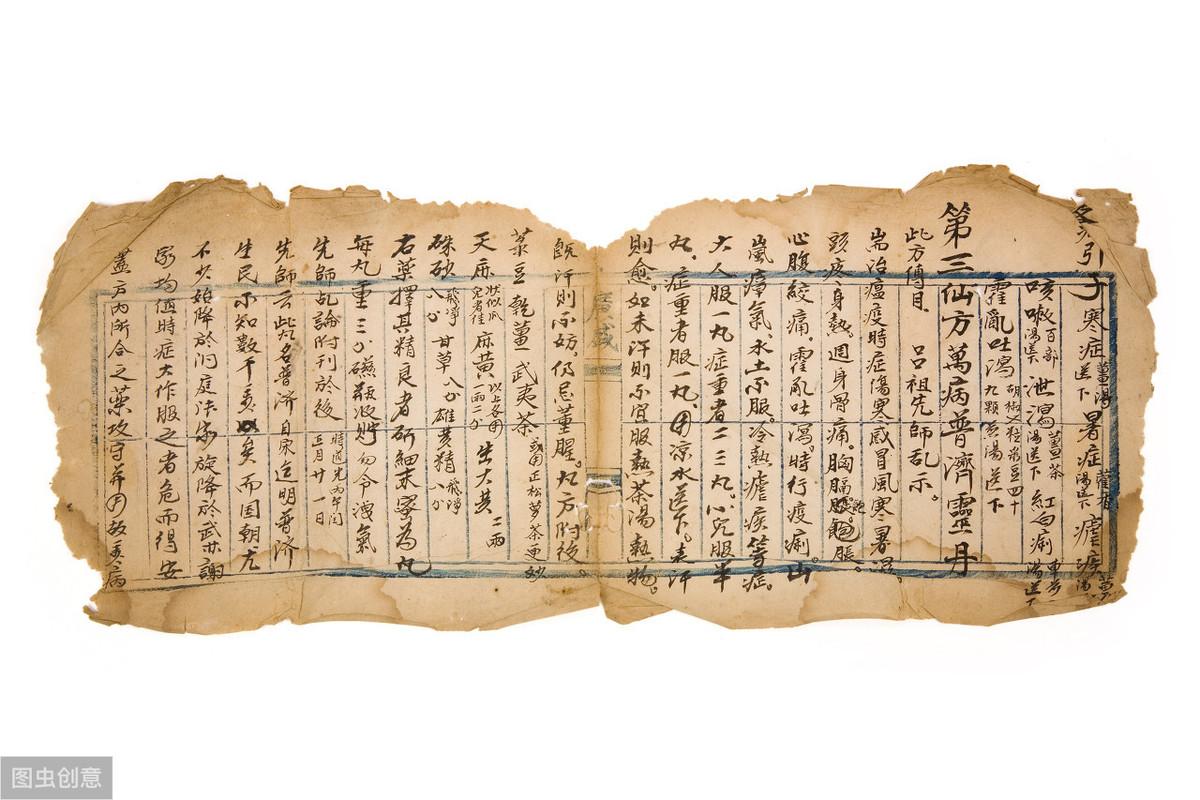 引子 寒症 薑湯送下 暑症 藿香湯送下 瘧疾
咳嗽 百部湯送下 泄瀉 薑茶湯送下 紅白痢 車前湯送下
霍亂吐瀉 胡椒 粒菉豆四十九顆煎湯送下
第三仙方萬病普濟靈丹
此方傳自 呂祖先師乩示。
耑治瘟疫時症傷寒感冒風寒暑濕。
頭疼身熱。週身骨痛。胸膈飽脹。
心腹絞痛。霍亂吐瀉。時行疫痢。山
嵐瘴氣。水土不服。冷熱瘧疾等症。
大人服一丸。症重者二三丸。小兒服半
丸。症重者服一丸。用凉水送下。表汗
則愈。如未汗則不宜服熱茶湯熱物。
既汗則不妨。仍忌葷腥。丸方附後。
菉豆 乾薑 武夷茶 或用正松萝茶更妙
天麻 狀似瓜 者佳 麻黄 以上各用一兩二分 生大黄 二兩
硃砂 八分飛净 甘草 八分 雄黄精 飛净八分
右藥擇其精良者研細末蜜為丸
每丸重三分磁瓶收貯勿令洩氣
先師乩論附刊於後 時道光丙午閏 正月廿一日
先師云此丸名普濟自宋迄明普濟
生民不知數千萬 矣而国朝尤
不少始降於洞庭法 旋降於武 謝
家均值時症大作服之者危而得安
盖方内所合之藥攻守并用故 病
廣盛
图虫创意